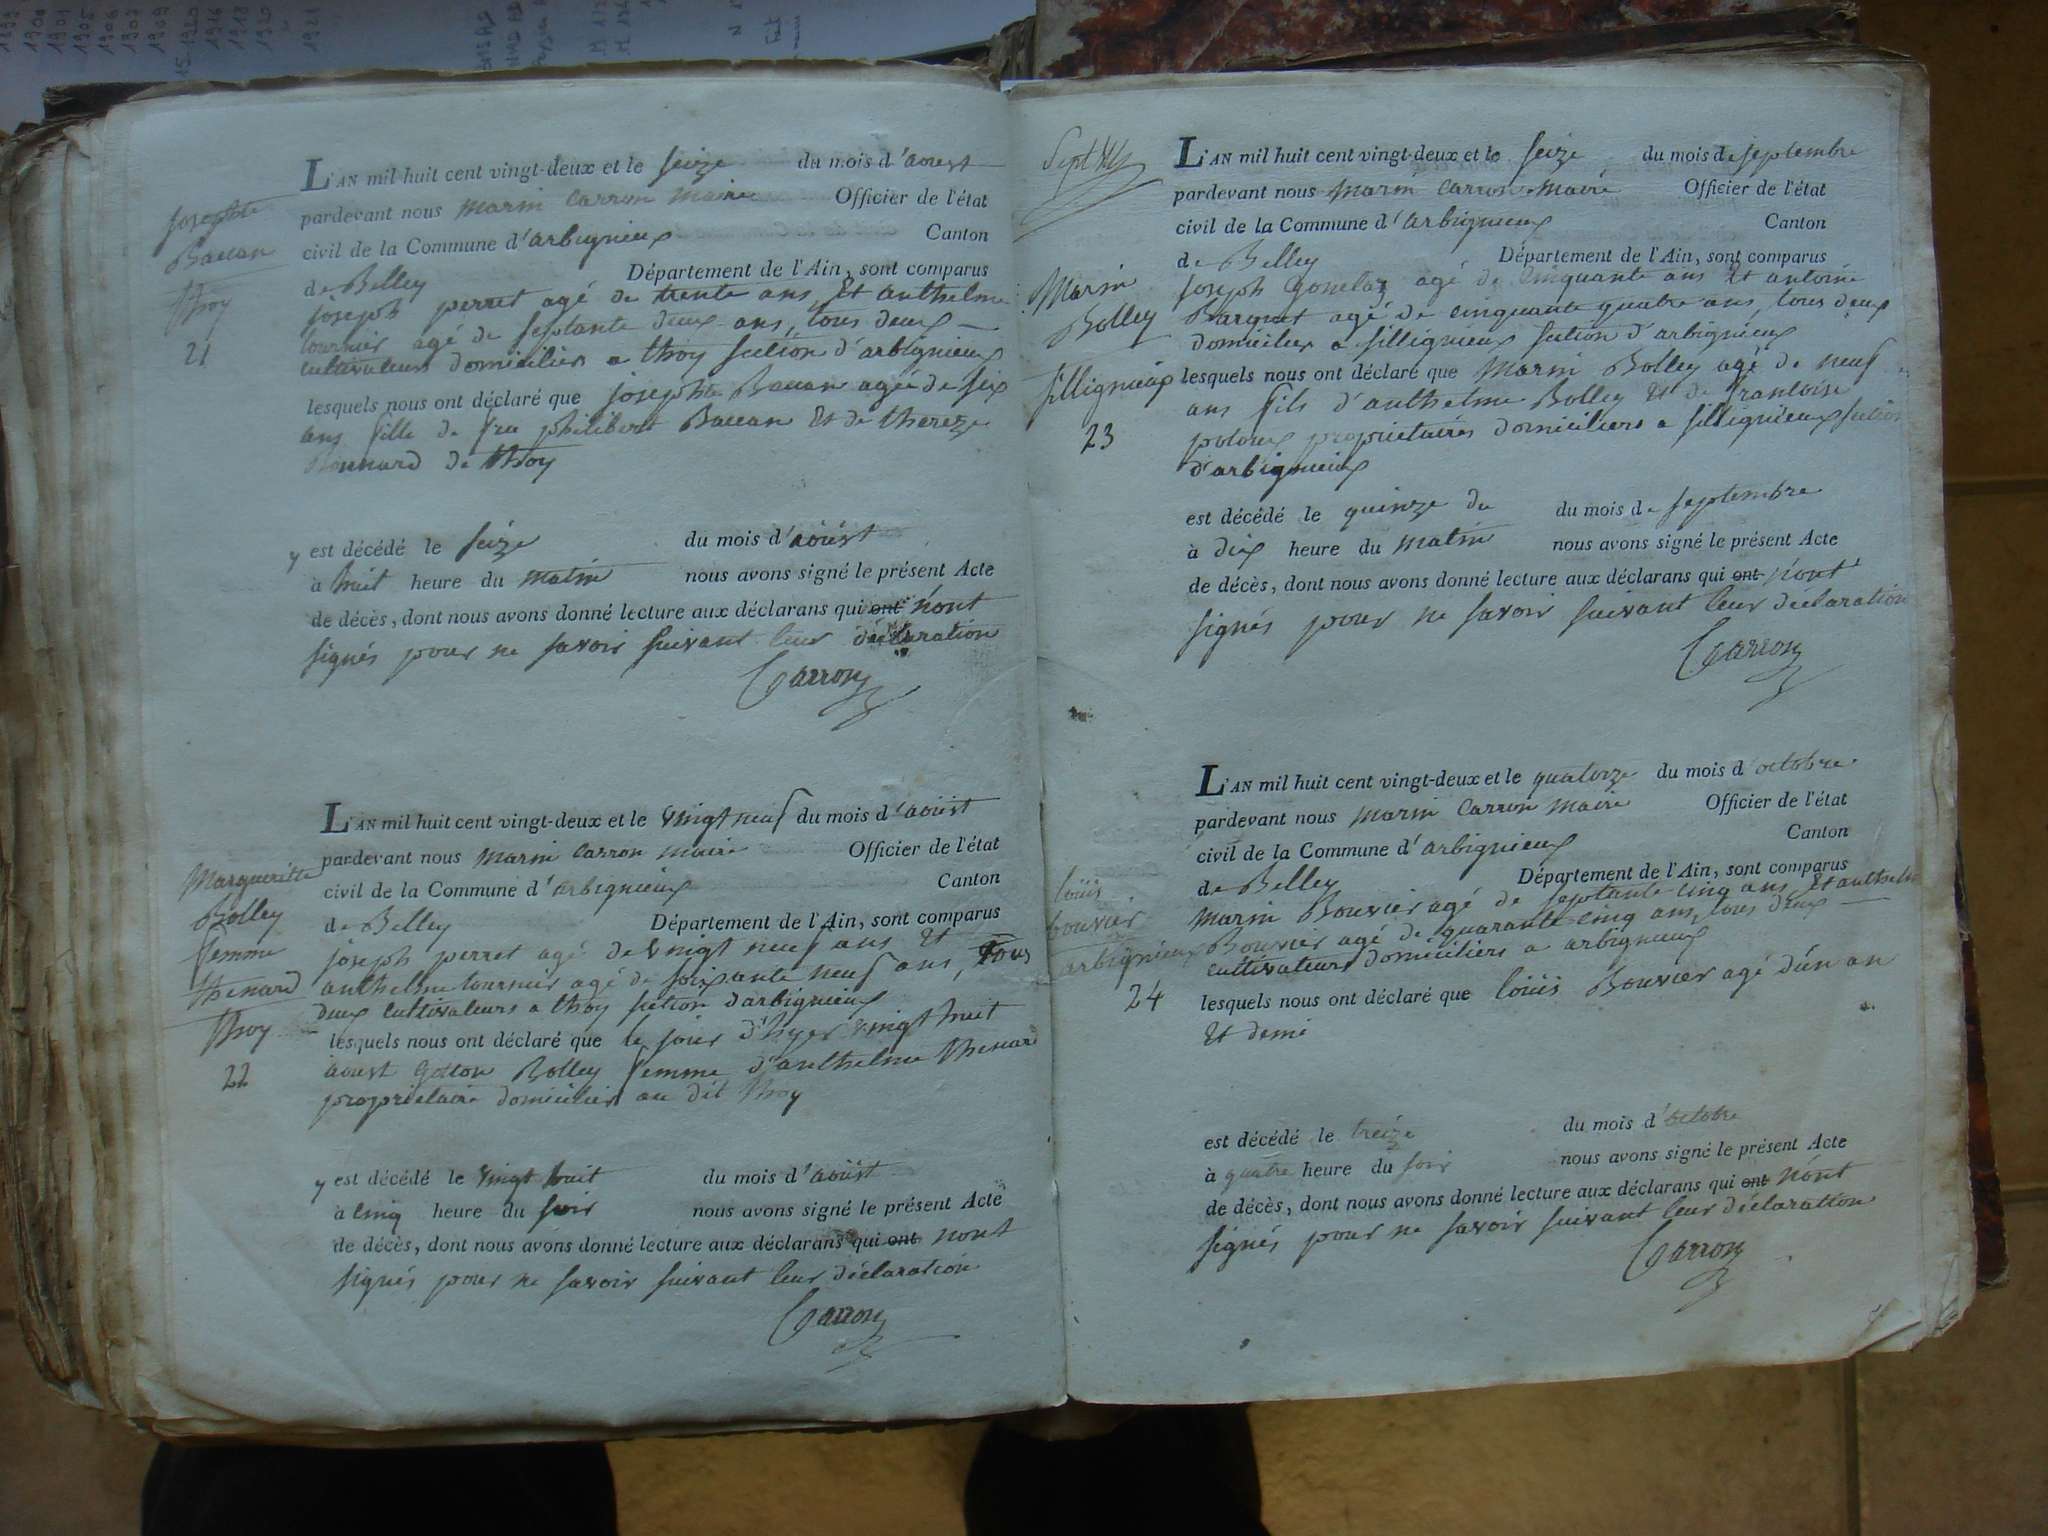 Josephte
Baccan
Thoy
21
L'AN mil huit cent vingt-deux et le seize du mois d'aoust
pardevant nous marin Carron maire Officier de l'état
civil de la Commune d'arbignieux Canton
de Belley Département de l'Ain, sont comparus
joseph perret agé de trente ans, Et anthelme
tournier agé de septante deux ans, tous deux
cultivateurs domiciliés a thoy section d'arbignieux
lesquels nous ont déclaré que josephte Baccan agée de six
ans fille de feu philibert Baccan Et de thereze
Bonnard de thoy
y est décédé le seize du mois d'aoüst
à huit heure du matin nous avons signé le présent Acte
de décès, dont nous avons donné lecture aux déclarans qui ont n'ont
signés pour ne savoir suivant leur déclaration
Carron
Margueritte
Bolley
femme
thenard
Thoy
22
L'AN mil huit cent vingt-deux et le vingt neuf du mois d'aoüst
pardevant nous marin Carron maire Officier de l'état
civil de la Commune d'arbignieux Canton
de Belley Département de l'Ain, sont comparus
joseph perret agé de vingt neuf ans Et
anthelme tournier agé de soixante neuf ans, tous
deux cultivateurs a thoy section d'arbignieux
lesquels nous ont déclaré que le jour d'hyer vingt huit
aoust Gotton Bolley femme d'anthelme thenard
propriétaire domicilier au dit thoy
y est décédé le vingt huit du mois d'aoüst
à cinq heure du soir nous avons signé le présent Acte
de décès, dont nous avons donné lecture aux déclarans qui ont n'ont
signés pour ne savoir suivant leur déclaration
Carron
Marin
Bolley
Sillignieux
23
L'AN mil huit cent vingt-deux et le seize du mois de septembre
pardevant nous marin Carron maire Officier de l'état
civil de la Commune d'arbignieux Canton
de Belley Département de l'Ain, sont comparus
Joseph Gonelaz agé de Cinquante ans Et antoine
Barquet agé de cinquante quatre ans, tous deux
domiciliés a sillignieux section d'arbignieux
lesquels nous ont déclaré que Marin Bolley agé de neuf
ans fils d'anthelme Bolley Et de francoise
propriétaires domiciliers a sillignieux section
d'arbignieux
est décédé le quinze du du mois de septembre
à dix heure du matin nous avons signé le présent Acte
de décès, dont nous avons donné lecture aux déclarans qui ont n'ont
signés pour ne savoir suivant leur déclaration
Carron
loüis
bouvier
arbignieux
24
L'AN mil huit cent vingt-deux et le quatorze du mois d'octobre
pardevant nous marin Carron maire Officier de l'état
civil de la Commune d'arbignieux Canton
de Belley Département de l'Ain, sont comparus
Marin Bouvier agé de septante cinq ans Et anthelme
Bouvier agé de quarante cinq ans, tous deux
cultivateurs domiciliers a arbignieux
lesquels nous ont déclaré que loüis Bouvier agé d'un an
Et demi
est décédé le treize du mois d'octobre
à quatre heure du soir nous avons signé le présent Acte
de décès, dont nous avons donné lecture aux déclarans qui ont n'ont
signés pour ne savoir suivant leur déclaration
Carron